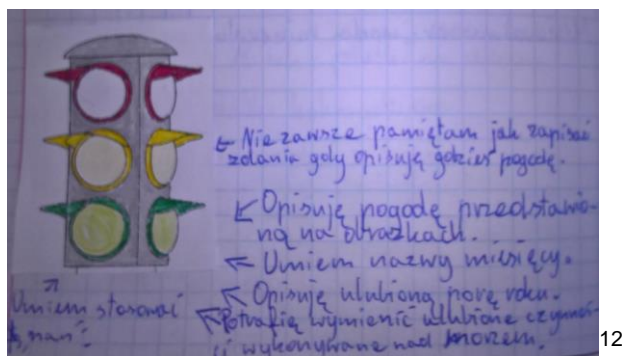 ← Nie zawsze pamiętam jak zapisać
zdania gdy opisuję gdzieś pogodę.
↙ Opisuję pogodę przedstawio-
ną na obrazkach.
← Umiem nazwy miesięcy.
↖ Opisuję ulubioną porę roku.
↖ Potrafię wymienić ulubione czynnoś-
ci wykonywane nad morzem.
↗
Umiem stosować
"man".
12